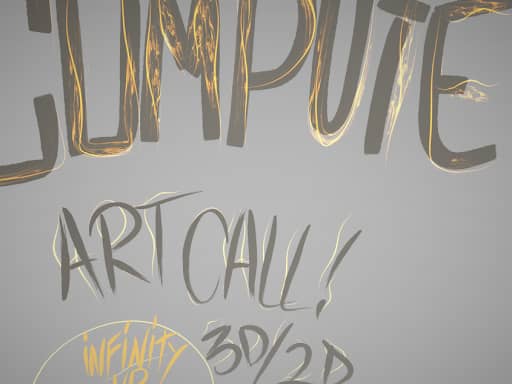 COMPUTE
ART CALL!
INFINITY
VR
3D/2D